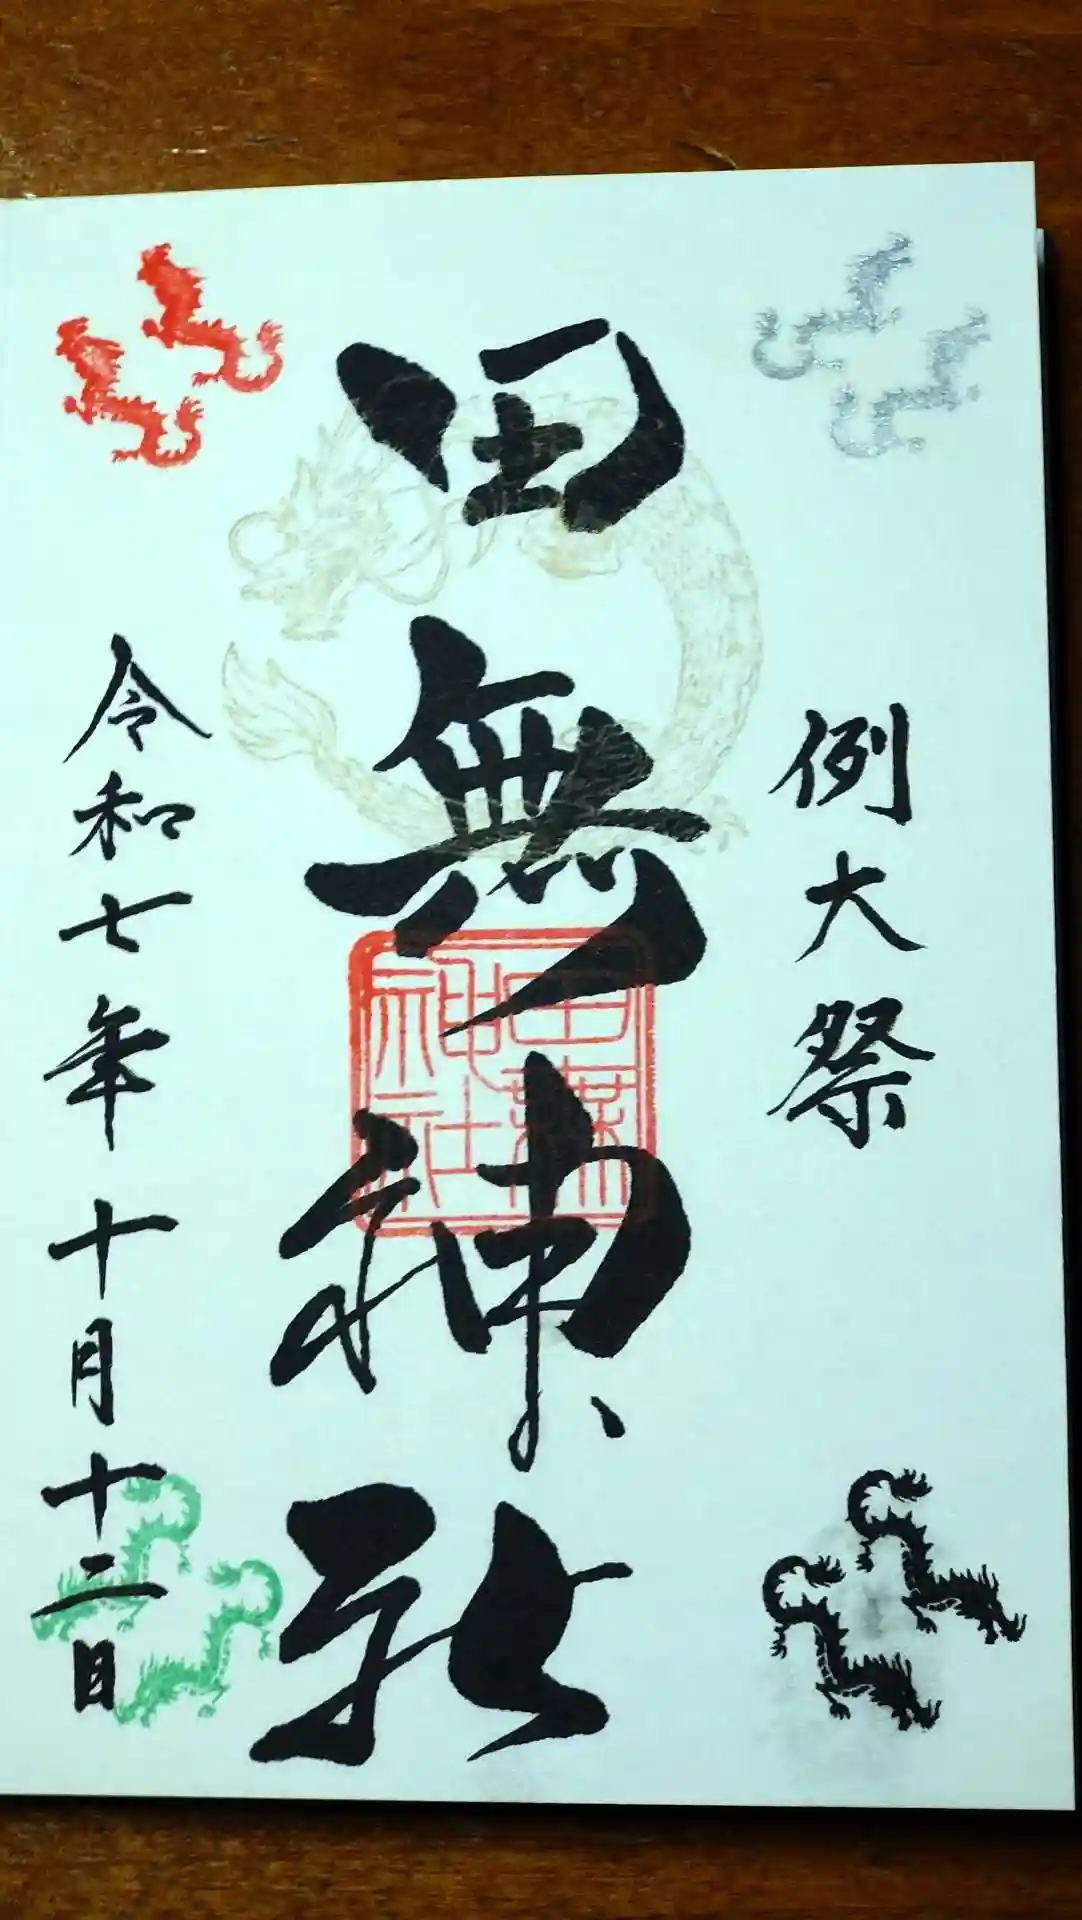 例大祭
田無神社
田無神社
令和七年十月十二日